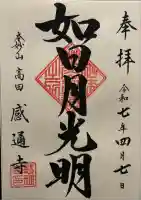 奉拝
令和七年四月七日
如日月光明
本妙山 高田
感通寺